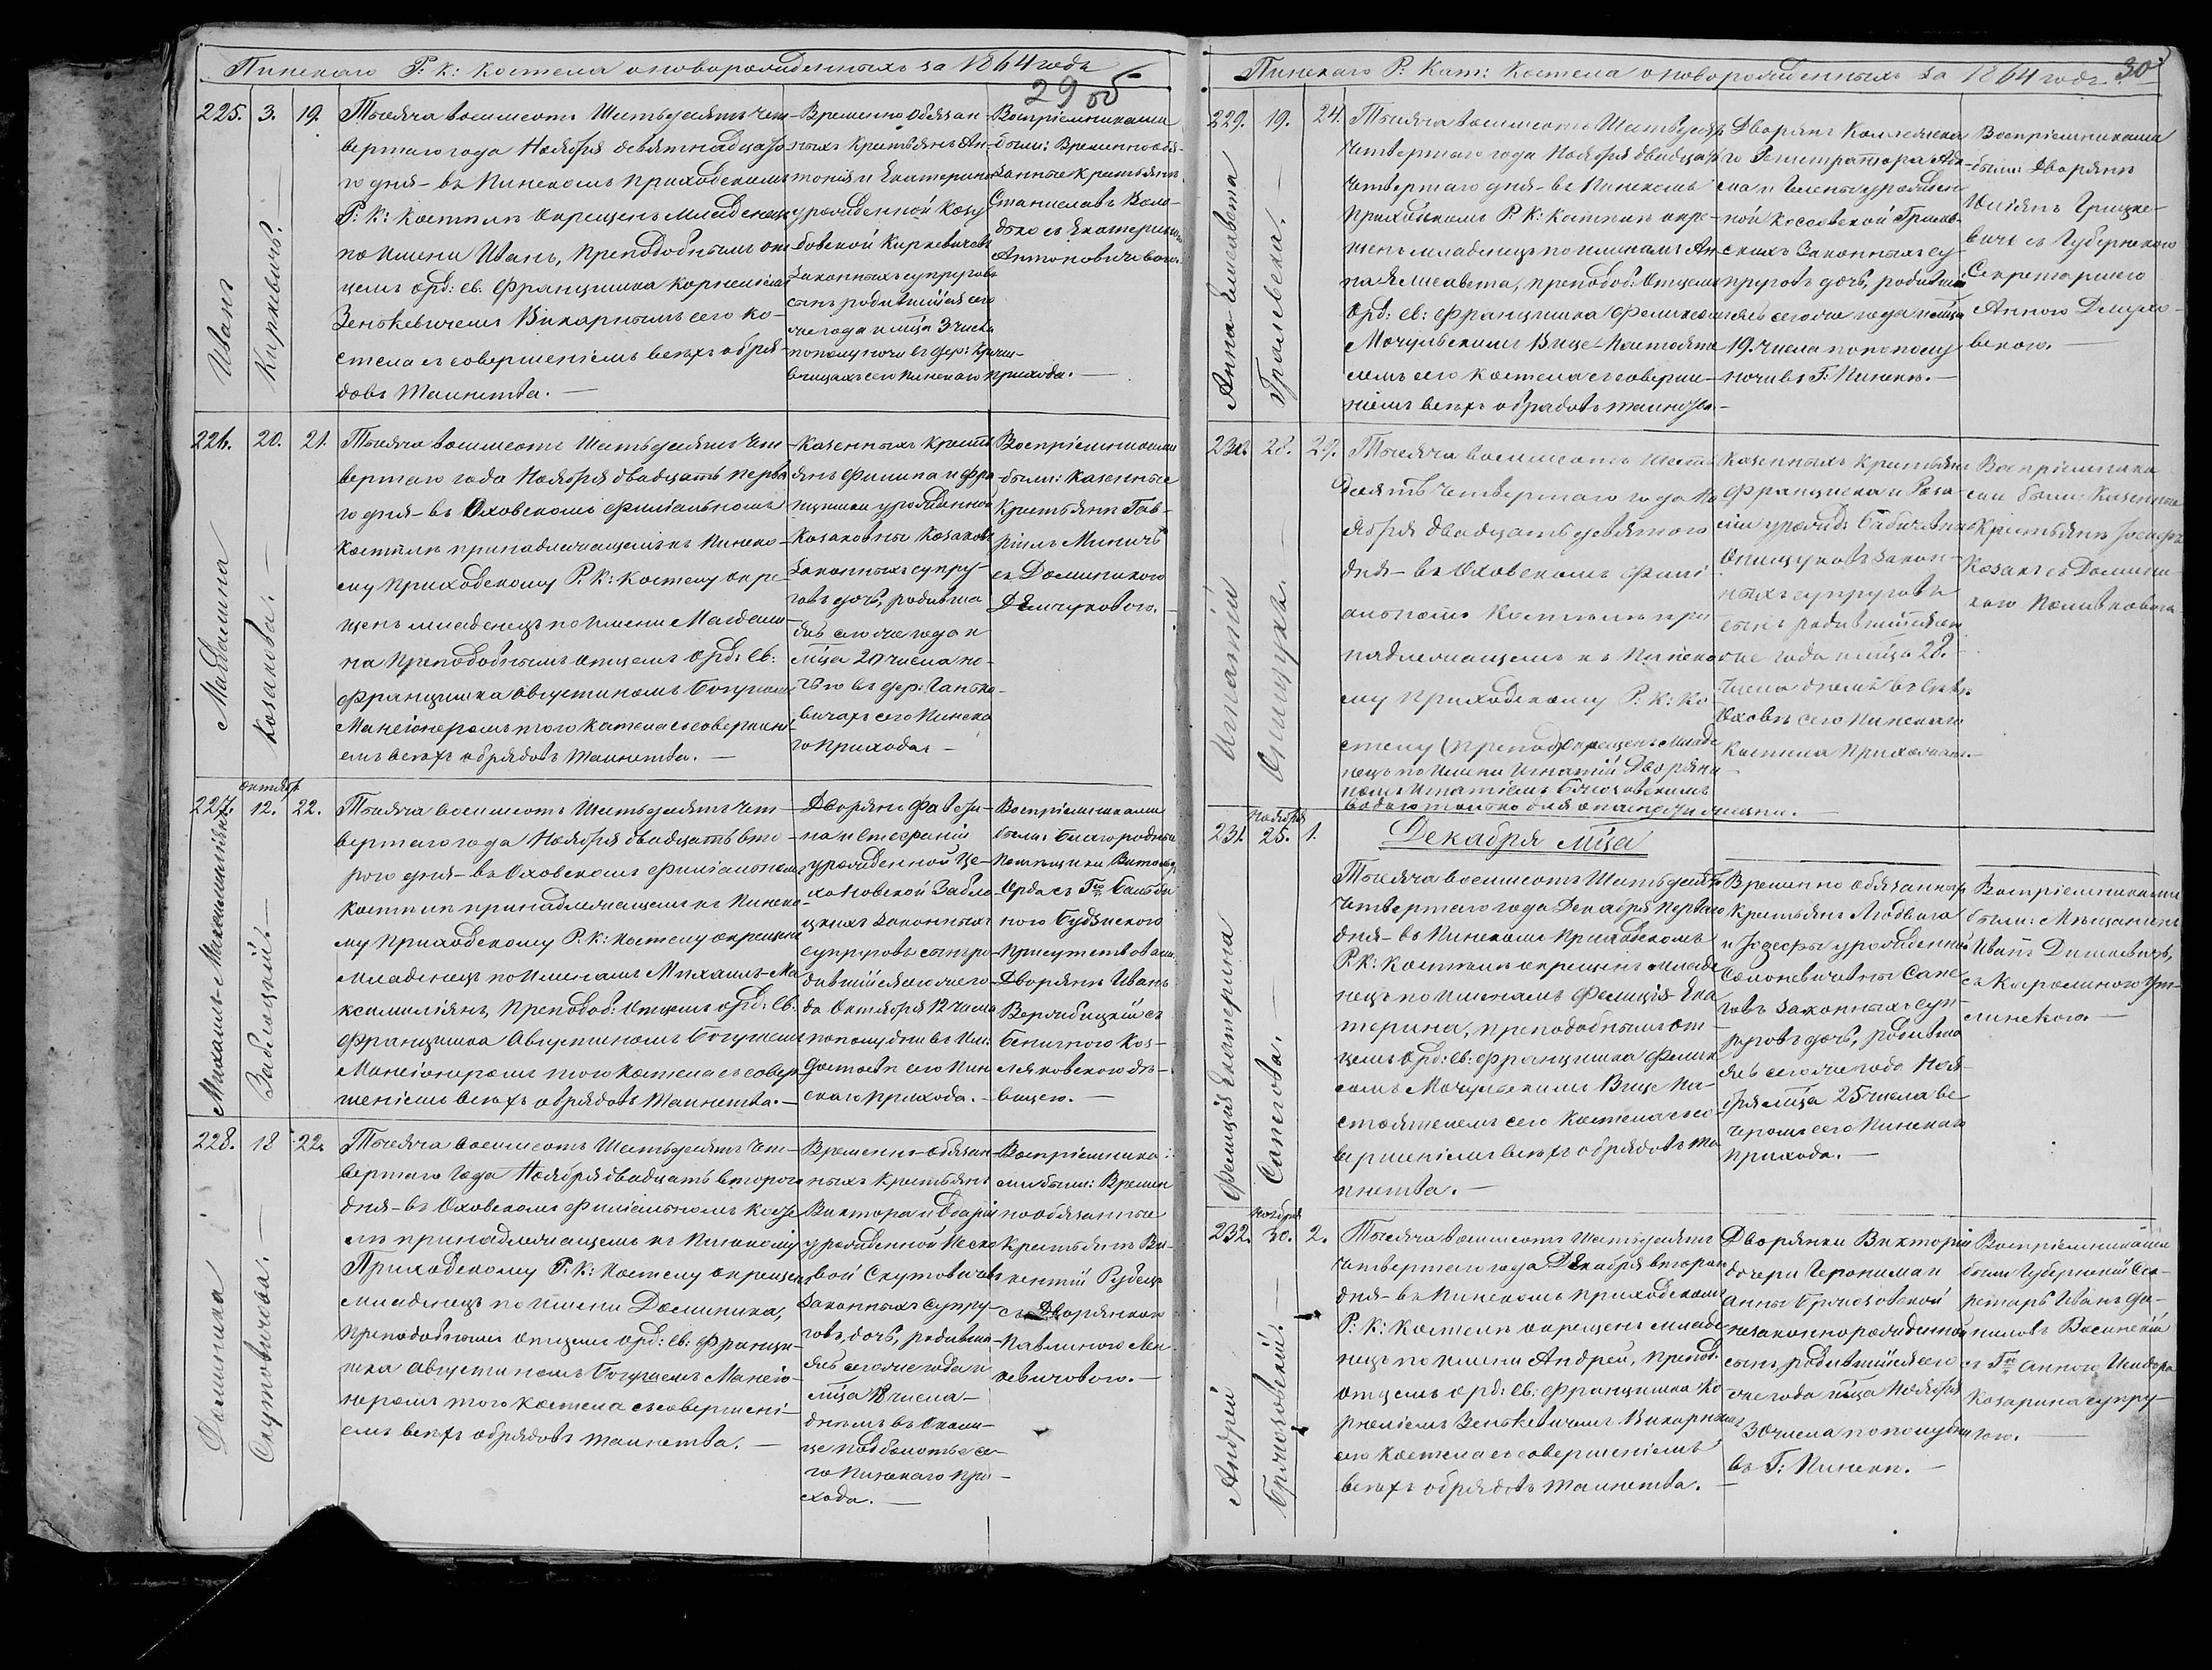 Пинскаго Р: К: Костела о новорожденныхъ за 1864 годъ
29 об
225. 3. 19.
Иванъ
Киркевичъ.
Тысяча восемьсотъ Шестьдесятъ чет-
вертаго года Ноября девятнадцата-
го дня – въ Пинскомъ Приходскомъ
Р: К: Костелѣ окрещенъ младенецъ
по имени Иванъ, Преподобнымъ от-
цемъ Орд: Св: Францишка Корнеліемъ
Зенькевичемъ Викарнымъ сего Ко-
стела съ совершеніемъ всѣхъ обря-
довъ Таинства. —
Временно обязан-
ныхъ Крестьянъ Ан-
тонія и Екатерины
урожденной Козу
бовской Киркевичевъ
Законныхъ супруговъ
сынъ родившійся сего
же года и мѣсяца 3 числа
по полуночи въ дер:
сего Пинскаго Прихода. —
Воспріемниками
были: Временно обя-
занные крестьянъ
Станиславъ Воло-
дько съ Екатериною
Антоновичевою.
226. 20. 21.
Магдалина
Козакова. —
Тысяча восемьсотъ Шестьдесятъ Чет-
вертаго года Ноября двадцать перва-
го дня – въ Оховскомъ филіальномъ
Костелѣ принадлежащемъ къ Пинско-
му Приходскому Р: К: Костелу окре-
щенъ младенецъ по имени Магдали-
на Преподобнымъ отцемъ Орд: Св:
Францишка Августиномъ Богушемъ
Мансіонеромъ того Костела съ совершені-
емъ всѣхъ обрядовъ Таинства. —
Казенныхъ Кресть
янъ Филипа и Фра
нцишки урожденной
Козаковны Козаковъ
Законныхъ супру-
говъ дочь, родивша
яся сего же года и
мѣсяца 20 числа но-
чью въ дер: Ганько-
вичахъ сего Пинска
го Прихода. —
Воспріемниками
были: Казенные
Крестьянъ Гав-
ріилъ Миничъ
съ Доминикою
Демчуковою. —
Октября
227. 12. 22.
Михаилъ-Максимиліянъ
Заблоцкій. —
Тысяча восемьсотъ Шестьдесятъ Чет-
вертаго года Ноября двадцать вто-
рого дня – въ Оховскомъ филіальномъ
Костелѣ принадлежащемъ къ Пинско-
му Приходскому Р: К: Костелу окрещенъ
младенецъ по именамъ Михаилъ-Ма
ксимиліянъ, Преподоб: Отцемъ Орд: Св:
Францишка Августиномъ Богушемъ
Мансіонеромъ того Костела съ совер-
шеніемъ всѣхъ обрядовъ Таинства. —
Дворянъ
на и Стефаніи
урожденной Це-
хановской Забло-
цкихъ законныхъ
супруговъ сынъ ро-
дившійся сего же го-
да Октября 12 числа
по полудни въ Им:
сего Пин
скаго Прихода. —
Воспріемниками
были: Благородные
Помѣщики Витольдъ
Орда съ Г-жею
Присутствовали:
Дворянъ Иванъ
Вержбицкій съ
Коз-
ляковскою дѣ-
вицею. —
228. 18 22.
Доминика
Скутовичева. —
Тысяча восемьсотъ Шестьдесятъ Чет-
вертаго Года Ноября двадцать второго
дня – въ Оховскомъ филіальномъ Косте
лѣ принадлежащемъ къ Пинскому
Приходскому Р: К: Костелу окрещенъ
младенецъ по имени Доминика,
Преподобнымъ отцемъ Орд: Св: Франци-
шка Августиномъ Богушемъ Мансіо-
неромъ того Костела съ совершені-
емъ всѣхъ обрядовъ таинства. —
Временно-обязан
ныхъ Крестьянъ
Виктора и Дарьи
урожденной Песко
вой Скутовичевъ
Законныхъ супру-
говъ, дочь, родивша-
яся сего же года и
мѣсяца 18 числа
днемъ въ Околи-
це Подболотье се-
го Пинскаго При-
хода. —
Воспріемника-
ми были: Времен
нообязанные
Крестьянъ Ви-
кентій Рубецъ
съ Дворянкою
Павлиною Ми
кевичовою. —
Пинскаго Р: Кат: Костела о новорожденныхъ за 1864 годъ
30
229. 19. 24.
Анна Елисавета
Гралевска. —
Тысяча восемьсотъ Шестьдесятъ
четвертаго года Ноября двадцать
четвертаго дня – въ Пинскомъ
Приходскомъ Р. К: Костелѣ окре-
щенъ младенецъ по именамъ Ан
на Елисавета, преподоб: Отцемъ
Орд: Св: Францишка Феликсомъ
Мочульскимъ Вице-Настояте
лемъ сего Костела съ соверше-
ніемъ всѣхъ обрядовъ таинства. —
Дворянъ Коллежска
го Регистратора Ада
ма и Гелены урожден
ной Коссовской Гралев-
скихъ Законныхъ су
пруговъ дочь, родивша
яся сего же года и мѣсяца
19. числа по полу
ночи въ Г: Пинскѣ. —
Воспріемниками
были: Дворянъ
Юліянъ Грицке-
вичъ съ Губернскою
Секретаршею
Анною
вскою. —
230. 28. 29.
Игнатій
Онищукъ. —
Тысяча восемьсотъ Шесть
десятъ Четвертаго года Но
ября двадцать девятого
дня – въ Оховскомъ Филі
альномъ Костелѣ при
надлежащемъ къ Пинско
му Приходскому Р: К: Ко-
стелу (препод) окрещенъ младе
нецъ по имени Игнатій Дворяни
номъ Игнатіемъ
водою только для опасности жизни. —
Казенныхъ Крестьянъ
Франциска и Роза-
ліи урожд: Бабичевны
Онищуковъ закон-
ныхъ супруговъ
сынъ родившійся сего
же года и мѣсяца 28.
числа днемъ въ селѣ
Оховѣ сего Пинскаго
Костела Прихожанъ. —
Воспріемника
ми были: Казенные
Крестьянъ Іосифъ
Козакъ съ Домини
кою
Ноября
231. 25. 1.
Декабря мѣсяца
Фелиція Екатерина
Сапегова. —
Тысяча восемьсотъ Шестьдесятъ
четвертаго года Декабря перваго
дня – въ Пинскомъ Приходскомъ
Р: К: Костелѣ окрещенъ младе
нецъ по именамъ Фелиція-Ека
терина, преподобнымъ от-
цемъ Орд: Св: Францишка Фелик
сомъ Мочульскимъ Вице На-
стоятелемъ сего Костела съ со-
вершеніемъ всѣхъ обрядовъ та
инства. —
Временно обязанныхъ
Крестьянъ Людвига
и Іозефы урожденной
Сапе
говъ законныхъ суп-
руговъ дочь, родивша
яся сего же года Ноя-
бря мѣсяца 25 числа ве
черомъ сего Пинскаго
Прихода. —
Воспріемниками
были: Мѣщанинъ
Иванъ
съ Каролиною
линскою. —
Ноября
232. 30. 2.
Андрей
Брчозовскій. —
Тысяча восемьсотъ Шестьдесятъ
четвертаго года Декабря второго
дня – въ Пинскомъ приходскомъ
Р: К: Костелѣ окрещенъ младе
нецъ по имени Андрей, препод:
отцемъ Орд: Св: Францишка Ко
рнеліемъ Зенькевичемъ Викарнымъ
сего Костела съ совершеніемъ
всѣхъ обрядовъ таинства. —
Дворянки Викторіи
дочери Геронима и
Анны Брчозовской
незаконнорожденной
сынъ, родившійся сего
же года мѣсяца Ноября
30 числа по полудни
въ Г: Пинскѣ. —
Воспріемниками
были Губернскій Сек-
ретарь Иванъ Да-
ниловъ Василь
съ Г-жею Анною Исидора
Козарина супру-
гою. —